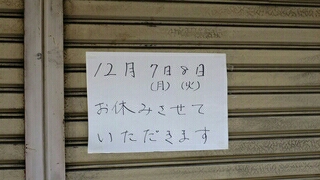 12月 7日8日
(月)(火)
お休みさせて
いただきます